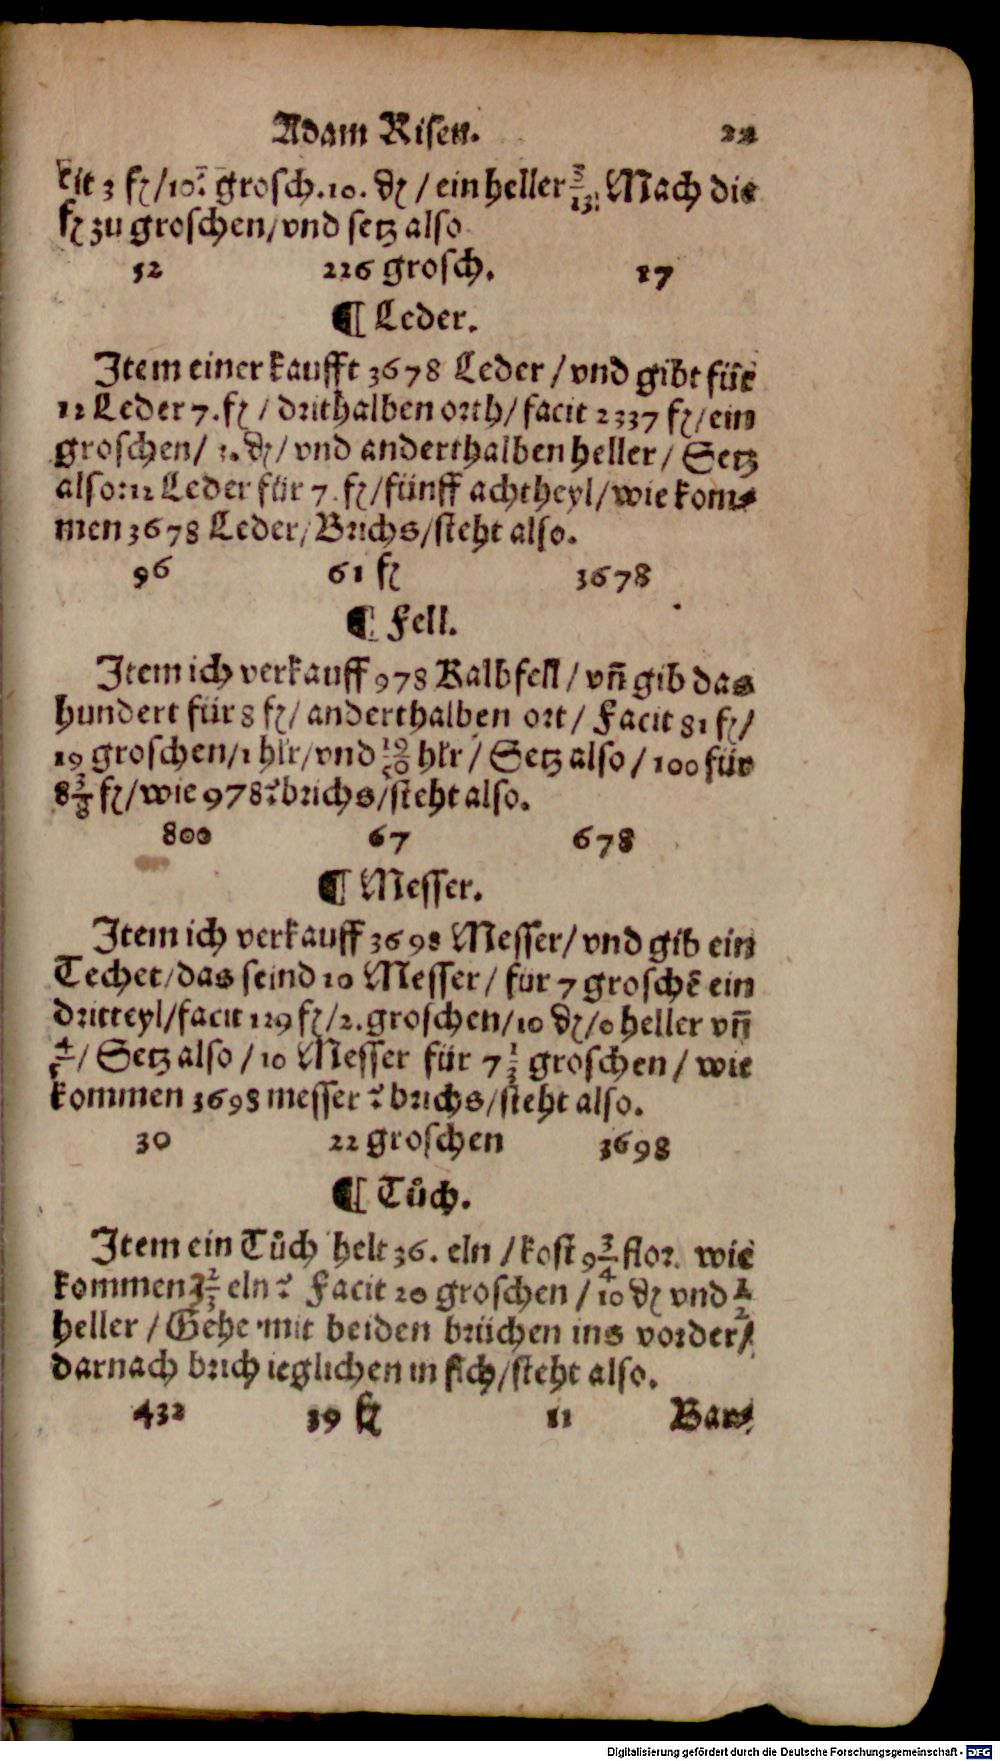 Adam Risen. 22
kit 3 fl/10. grosch.10. ₰ / ein heller 3/13. Mach die
fl zu groschen/vnd setz also
52 226 grosch. 17
¶ Leder.
Item einer kaufft 3678 Leder / vnd gibt für
12 Leder 7.fl / drithalben orth/ facit 2337 fl/ ein
groschen/ 3.₰/ vnd anderthalben heller/ Setz
also:12 Leder für 7.fl/fünff achtheyl/wie kom⸗
men 3678 Leder/Brichs/steht also.
96 61 fl 3678
¶ Fell.
Item ich verkauff 978 Kalbfell/ vñ gib das
hundert für 8 fl/ anderthalben ort/ Facit 81 fl/
19 groschen/1 hlr/vnd hlr/ Setz also/100 für
8 3/8 fl/wie 978?brichs/steht also.
800 67 678
¶ Messer.
Item ich verkauff 3698 Messer/ vnd gib ein
Techet/das seind 10 Messer/ für 7 groschẽ ein
dritteyl/facit 129 fl/2.groschen/10 ₰/0 heller vñ
4/5/ Setz also/10 Messer für 7 1/3 groschen/ wie
kommen 3698 messer ? brichs/steht also.
30 22 groschen 3698
¶ Tůch.
Item ein Tůch helt 36. eln /kost 9 3/4 flor. wie
kommen 2/3 eln ? Facit 20 groschen / 10 ₰ vnd 1/2
heller / Gehe mit beiden brüchen ins vorder/
darnach brich ieglichen in sich/steht also.
432 39 fl 11 Bar⸗
Digitalisierung gefördert durch die Deutsche Forschungsgemeinschaft - DFG